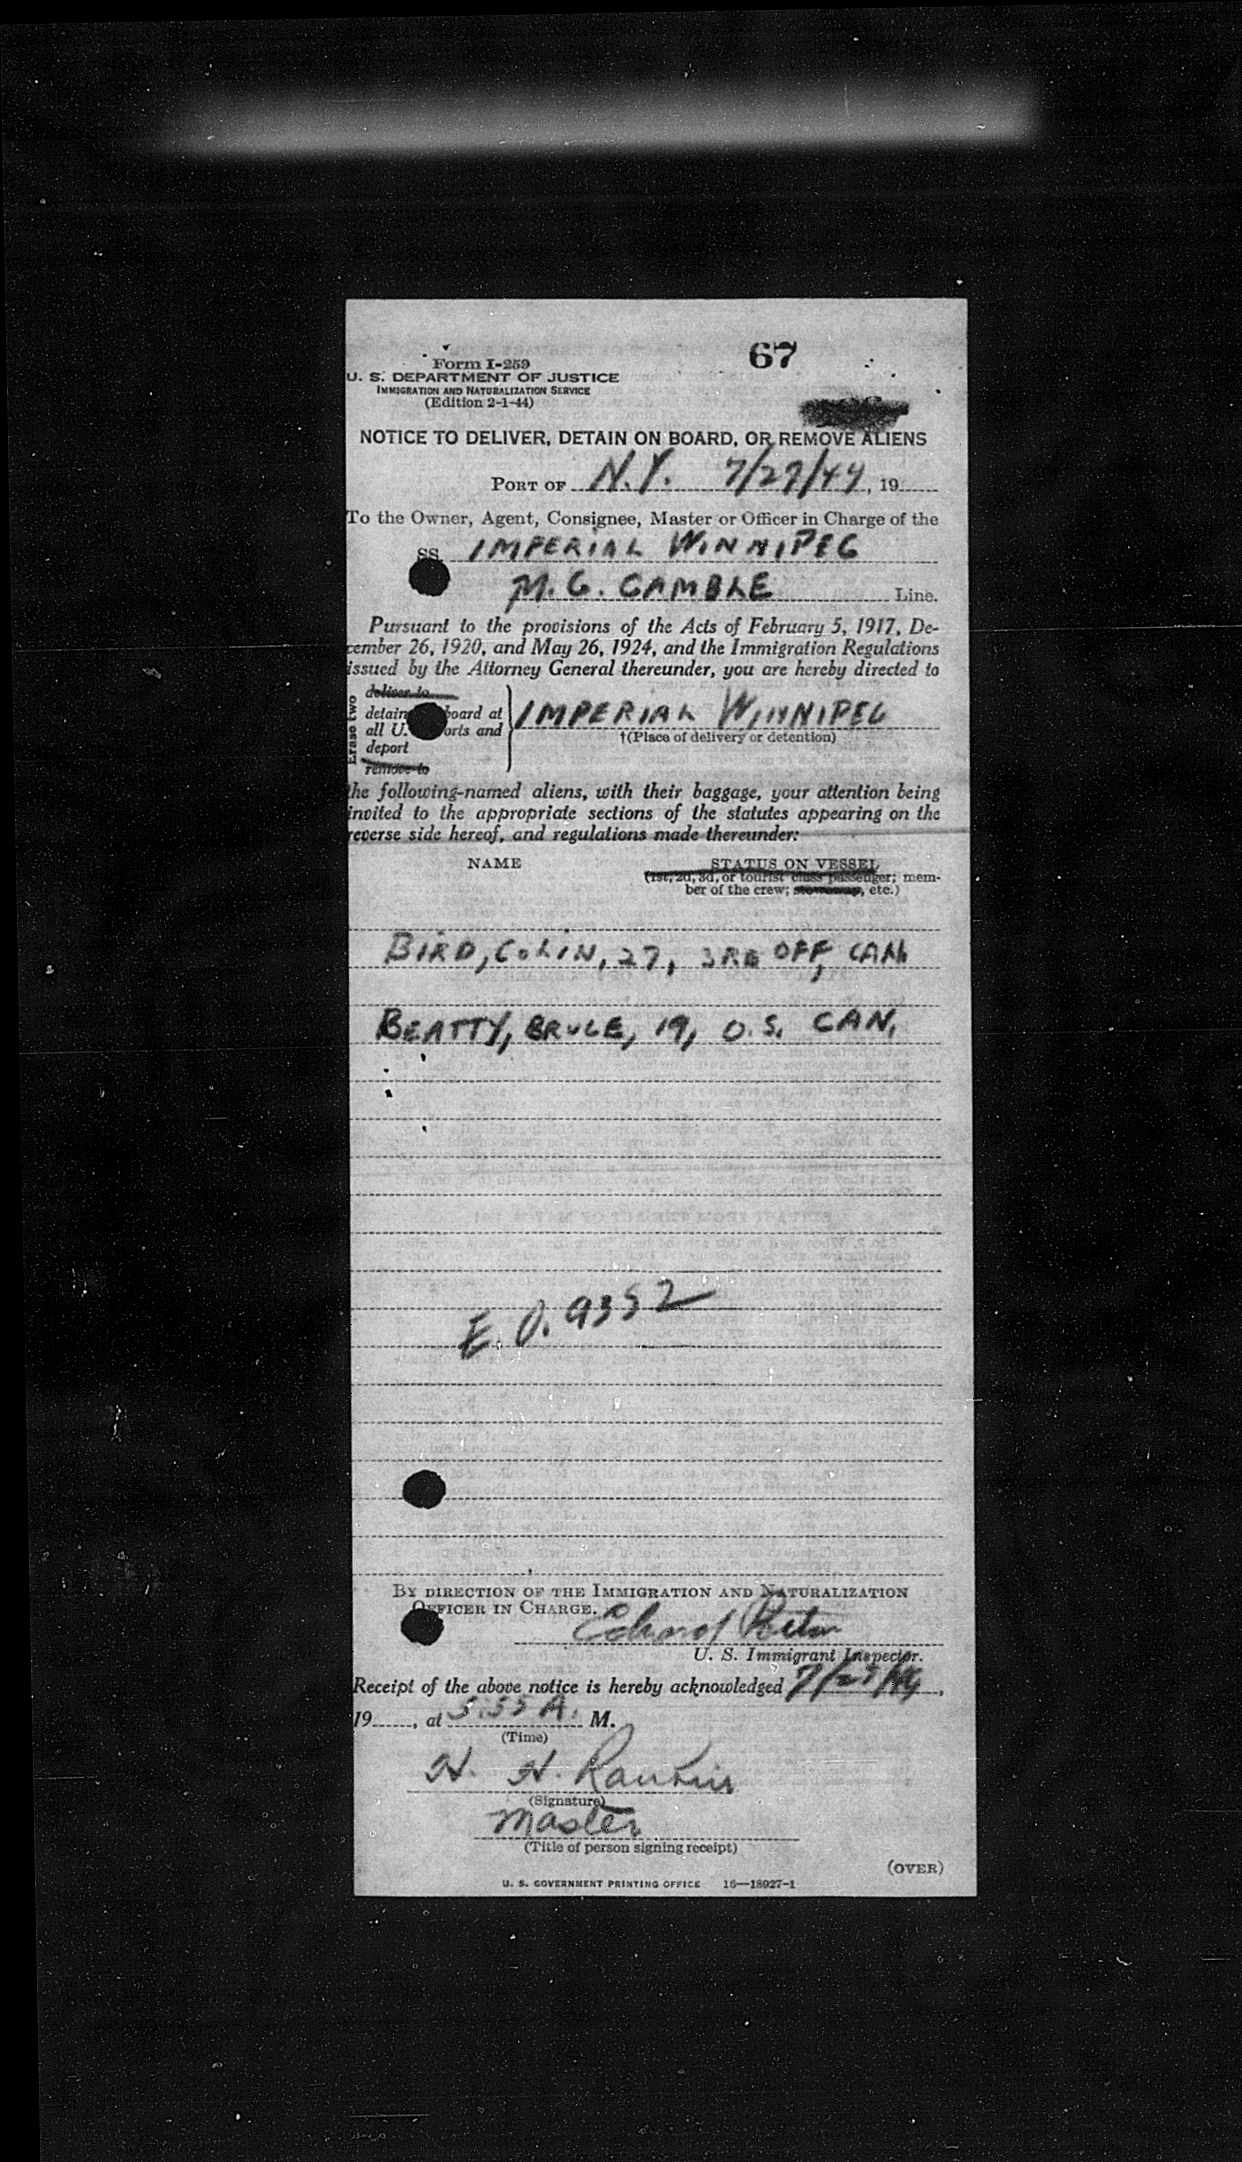 67
Form I-259
U. S. DEPARTMENT OF JUSTICE
IMMIGRATION AND NATURALIZATION SERVICE
(Edition 2-1-44)
NOTICE TO DELIVER, DETAIN ON BOARD, OR REMOVE ALIENS
PORT OF N.Y. 7/27/44, 19
To the Owner, Agent, Consignee, Master or Officer in Charge of the
SS. IMPERIAL WINNIPEG
M. G. GAMBLE Line.
Pursuant to the provisions of the Acts of February 5, 1917, De-
cember 26, 1920, and May 26, 1924, and the Immigration Regulations
issued by the Attorney General thereunder, you are hereby directed to
Erase two
deliver to
detain board at
all U. orts and
deport
remove to
IMPERIAL WINNIPEG
†(Place of delivery or detention)
the following-named aliens, with their baggage, your attention being
invited to the appropriate sections of the statutes appearing on the
reverse side hereof, and regulations made thereunder:
NAME STATUS ON VESSEL
(1st, 2d, 3d, or tourist class passenger; mem-
ber of the crew; stowaway, etc.)
BIRD, COLIN, 27, 3RD OFF, CAN
BEATTY, BRUCE, 19, O.S. CAN.
E. O. 9352
BY DIRECTION OF THE IMMIGRATION AND NATURALIZATION
OFFICER IN CHARGE.
U. S. Immigrant Inspector.
Receipt of the above notice is hereby acknowledged 7/27/44,
19, at 5:55 A. M.
(Time)
H. H. Rankin
(Signature)
Master
(Title of person signing receipt)
(OVER)
U. S. GOVERNMENT PRINTING OFFICE 16—18927-1